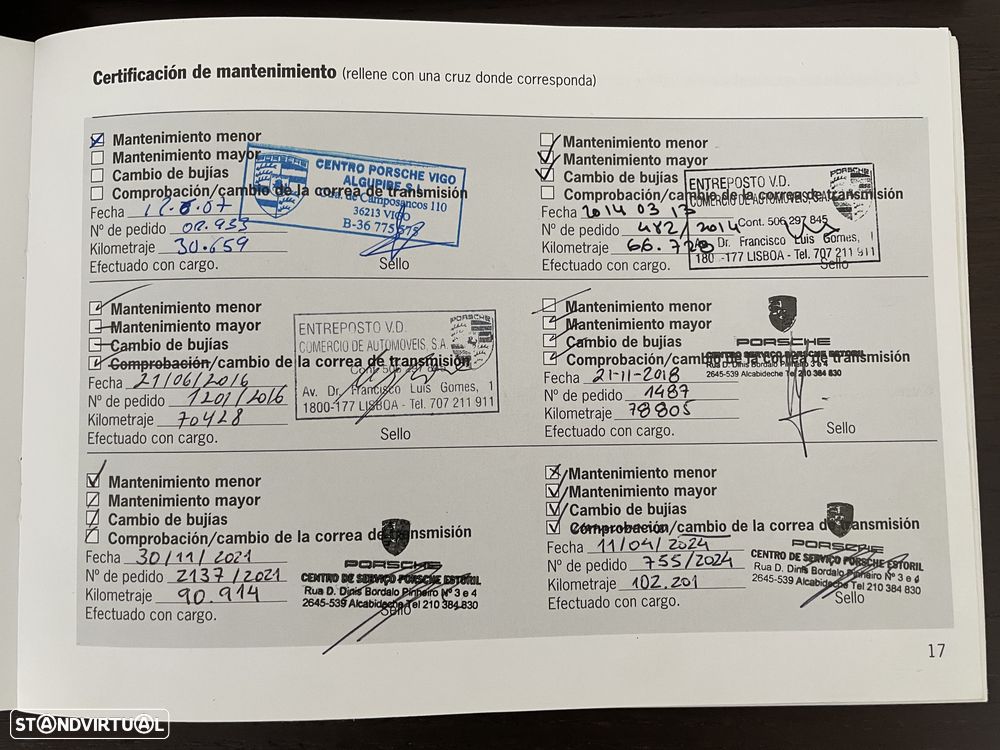 Certificación de mantenimiento (rellene con una cruz donde corresponda)
Mantenimiento menor
Mantenimiento mayor
Cambio de bujías
Comprobación/cambio de la correa de transmisión
PORSCHE
CENTRO PORSCHE VIGO
ALGUPIRE S.L.
Ctra. de Camposancos 110
36213 VIGO
B-36 775 575
Fecha
Nº de pedido 02.933
Kilometraje 30.659
Efectuado con cargo.
Sello
Mantenimiento menor
Mantenimiento mayor
Cambio de bujías
Comprobación/cambio de la correa de transmisión
ENTREPOSTO V.D.
COMERCIO DE AUTOMÓVEIS, S.A.
Cont. 506 297 845
Av. Dr. Francisco Luis Gomes, 1
1800-177 LISBOA - Tel. 707 211 911
Fecha 2014 03 17
Nº de pedido 482/2014
Kilometraje 66.728
Efectuado con cargo.
Sello
Mantenimiento menor
Mantenimiento mayor
Cambio de bujías
Comprobación/cambio de la correa de transmisión
PORSCHE
ENTREPOSTO V.D.
COMERCIO DE AUTOMÓVEIS, S.A.
Cont. 506 297 845
Av. Dr. Francisco Luis Gomes, 1
1800-177 LISBOA - Tel. 707 211 911
Fecha 21/06/2016
Nº de pedido 1201/2016
Kilometraje 70428
Efectuado con cargo.
Sello
Mantenimiento menor
Mantenimiento mayor
Cambio de bujías
Comprobación/cambio de la correa de transmisión
PORSCHE
CENTRO SERVIÇO PORSCHE ESTORIL
Rua D. Dinis Bordalo Pinheiro Nº 3 e 4
2645-539 Alcabideche Tel 210 384 830
Fecha 21-11-2018
Nº de pedido 1487
Kilometraje 78805
Efectuado con cargo.
Sello
Mantenimiento menor
Mantenimiento mayor
Cambio de bujías
Comprobación/cambio de la correa de transmisión
PORSCHE
CENTRO DE SERVIÇO PORSCHE ESTORIL
Rua D. Dinis Bordalo Pinheiro Nº 3 e 4
2645-539 Alcabideche Tel 210 384 830
Fecha 30/11/2021
Nº de pedido 2137/2021
Kilometraje 90.914
Efectuado con cargo.
Sello
Mantenimiento menor
Mantenimiento mayor
Cambio de bujías
Comprobación/cambio de la correa de transmisión
PORSCHE
CENTRO DE SERVIÇO PORSCHE ESTORIL
Rua D. Dinis Bordalo Pinheiro Nº 3 e 4
2645-539 Alcabideche Tel 210 384 830
Fecha 11/04/2024
Nº de pedido 755/2024
Kilometraje 102.201
Efectuado con cargo.
Sello
17
STANDVIRTUAL